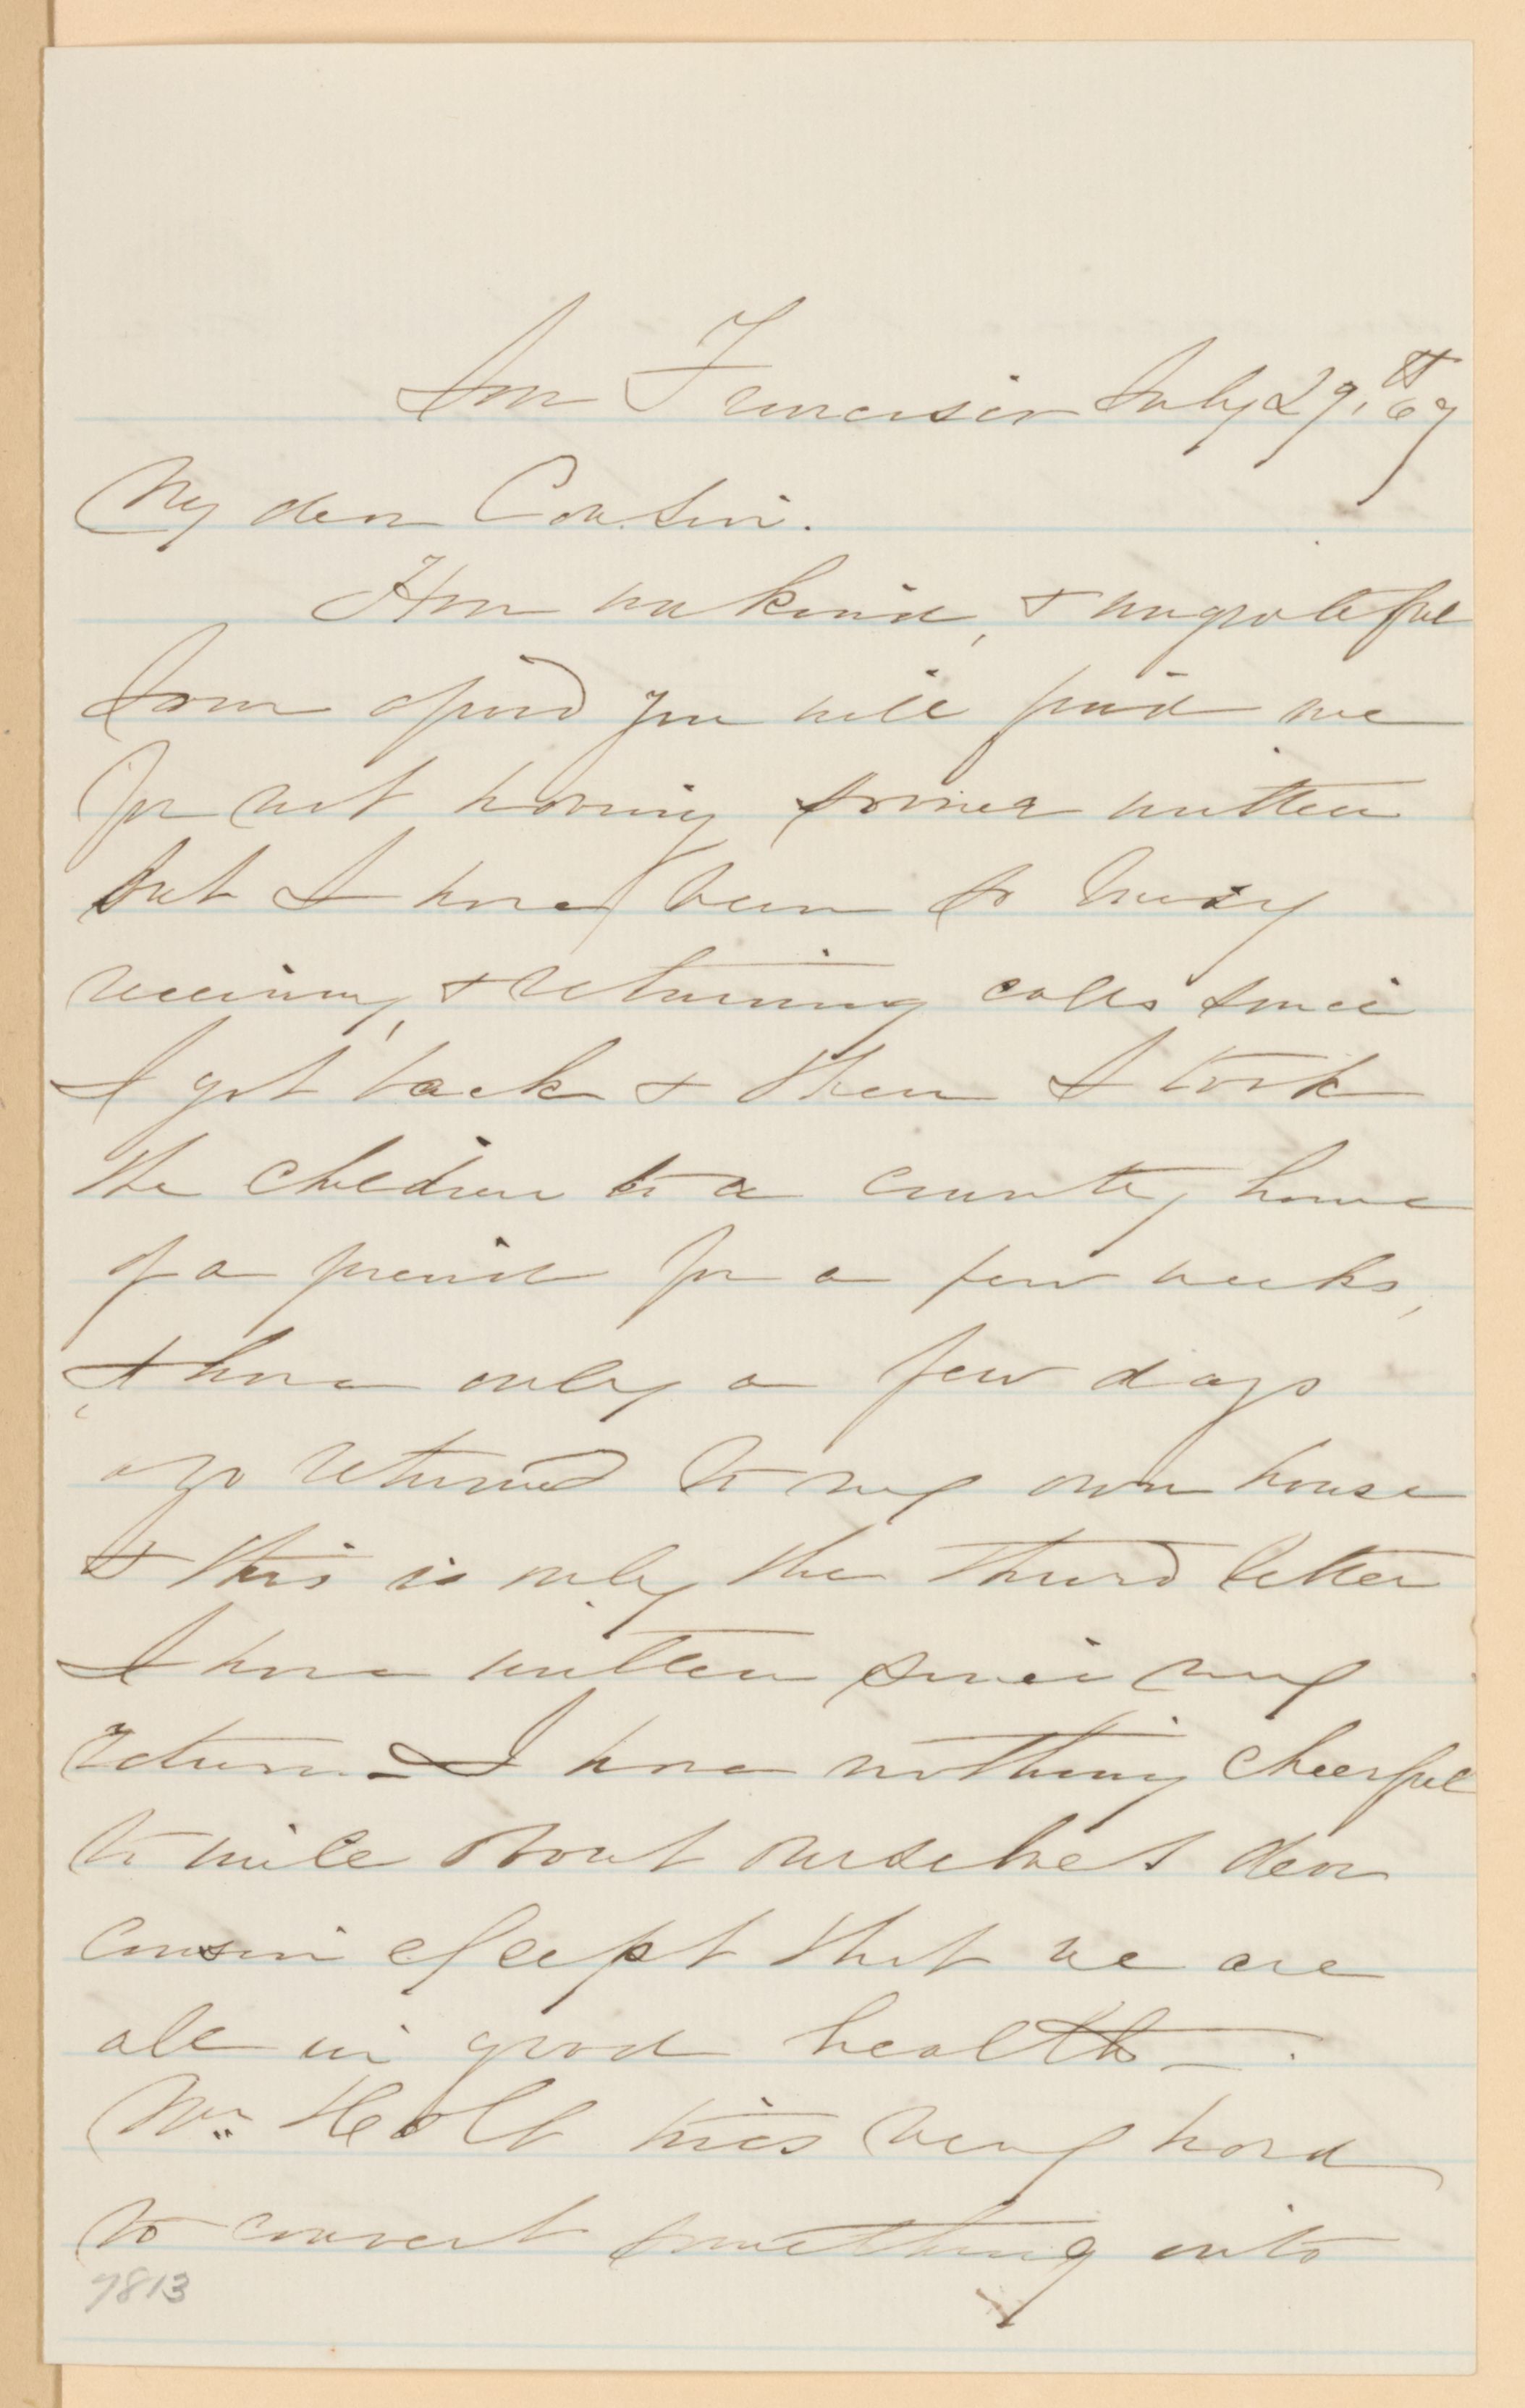 San Francisco July 29th, 69
My dear Cousin.
How unkind, & ungrateful
I am afraid you will find me
for not having sooner written
but I have been so busy
receiving, & returning calls since
I got back & then I took
the children to a country home
of a friend for a few weeks,
& have only a few days
ago returned to my own house
& this is only the third letter
I have written since my
return - I have nothing cheerful
to write about ourselves dear
cousin except that we are
all in good health -.
Mr. Holt tries very hard
to convert something into
7813